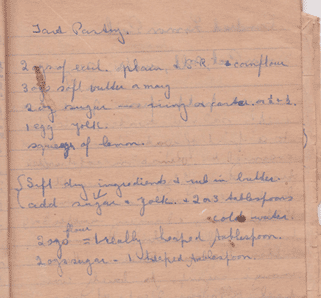 Tard Pastry.
2 ozs of each. plain & S R & cornflour
3 ozs soft butter or marg
2 oz sugar
1 egg yolk.
squeeze of lemon.
Sift dry ingredients & rub in butter.
add sugar & yolk. & 2 or 3 tablespoons
of cold water
2 ozs flour = 1 really heaped tablespoon.
2 ozs sugar - 1 heaped tablespoon.